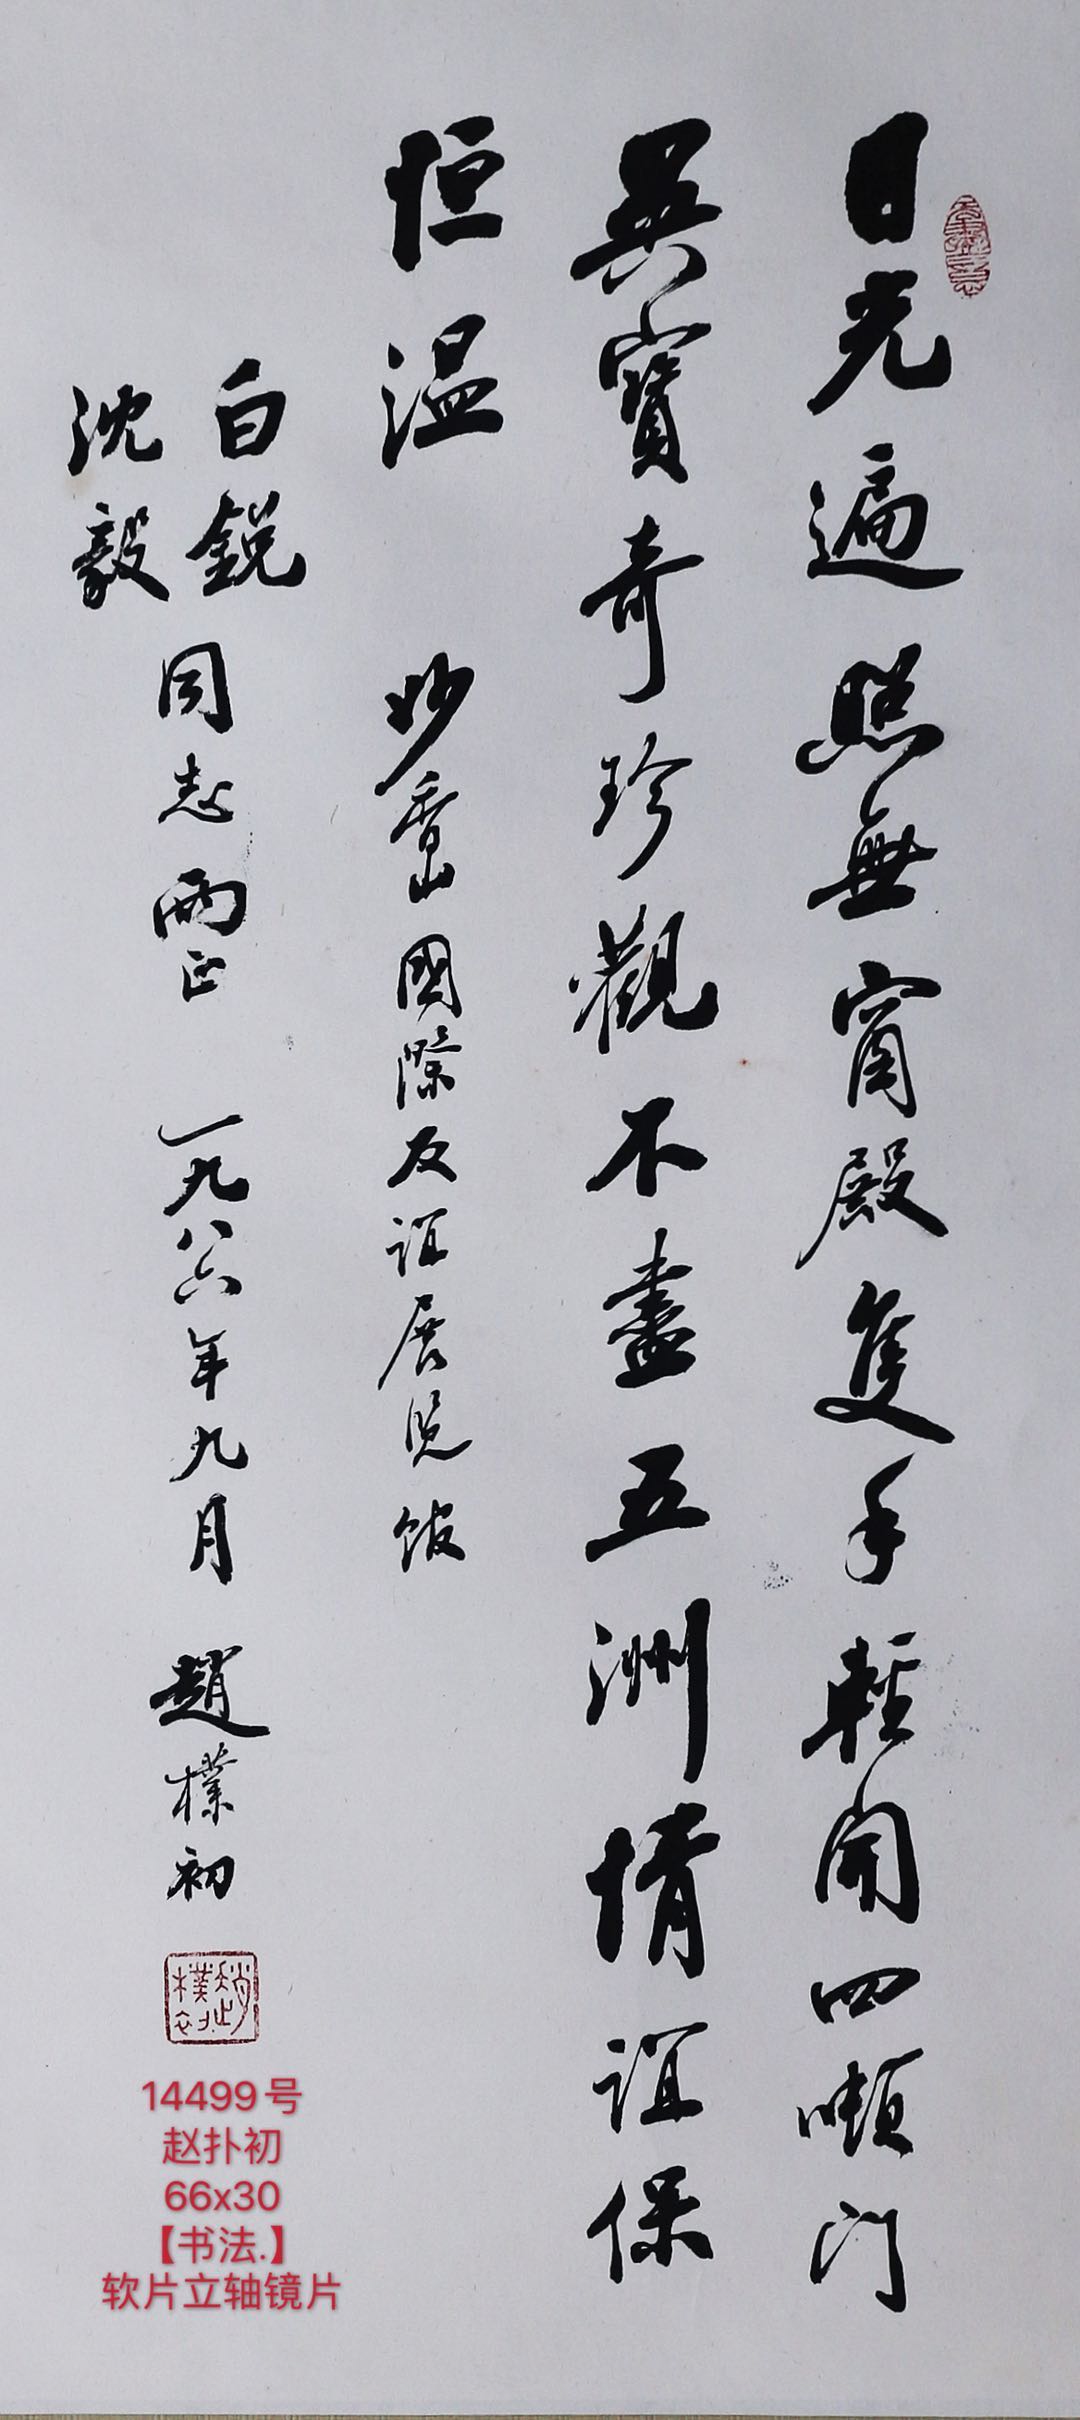 日光遍照無窗殿隻手輕開四噸門
異寶奇珍觀不盡五洲情誼保
恒温 妙香山國際友誼展览馆
白銳
沈毅
同志兩正 一九八六年九月 趙樸初
趙樸初
14499号
赵扑初
66x30
【书法.】
软片立轴镜片